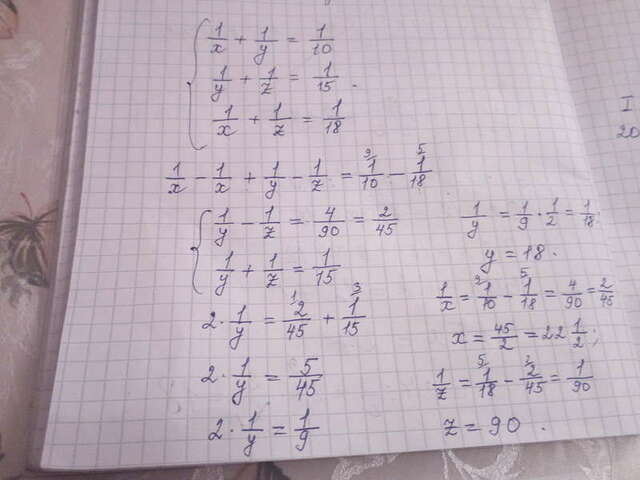 1/x + 1/y = 1/10
1/y + 1/z = 1/15.
1/x + 1/z = 1/18
1/x - 1/x + 1/y - 1/z = 9 1/10 - 5 1/18
1/y - 1/z = 4/90 = 2/45
1/y + 1/z = 1/15
2 · 1/y = 1 2/45 + 3 1/15
2 · 1/y = 5/45
2 · 1/y = 1/9
1/y = 1/9 · 1/2 = 1/18.
y = 18.
1/x = 9 1/10 - 5 1/18 = 4/90 = 2/45
x = 45/2 = 22 1/2;
1/z = 5 1/18 - 2 2/45 = 1/90
z = 90.
I
20